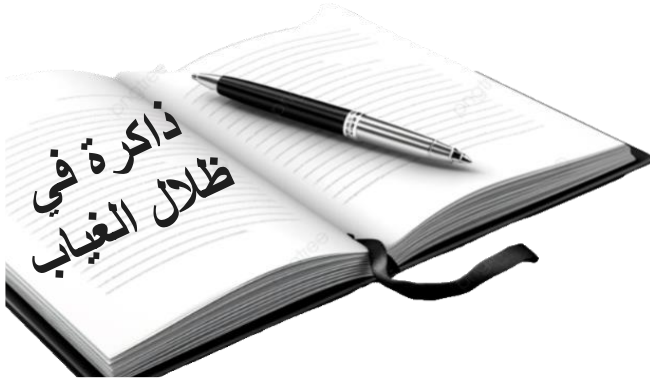 ذاكرة في
ظلال الغياب